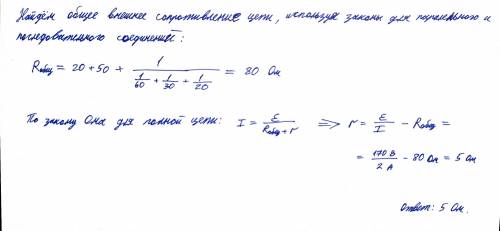 Найдём общее внешнее сопротивление цепи, используя законы для параллельного и
последовательного соединений:
Rобщ = 20 + 50 + 1 / (1/60 + 1/30 + 1/20) = 80 Ом
По закону Ома для полной цепи: I = ε / (Rобщ + r) => r = ε/I − Rобщ =
= 170 В / 2 А − 80 Ом = 5 Ом
Ответ: 5 Ом.